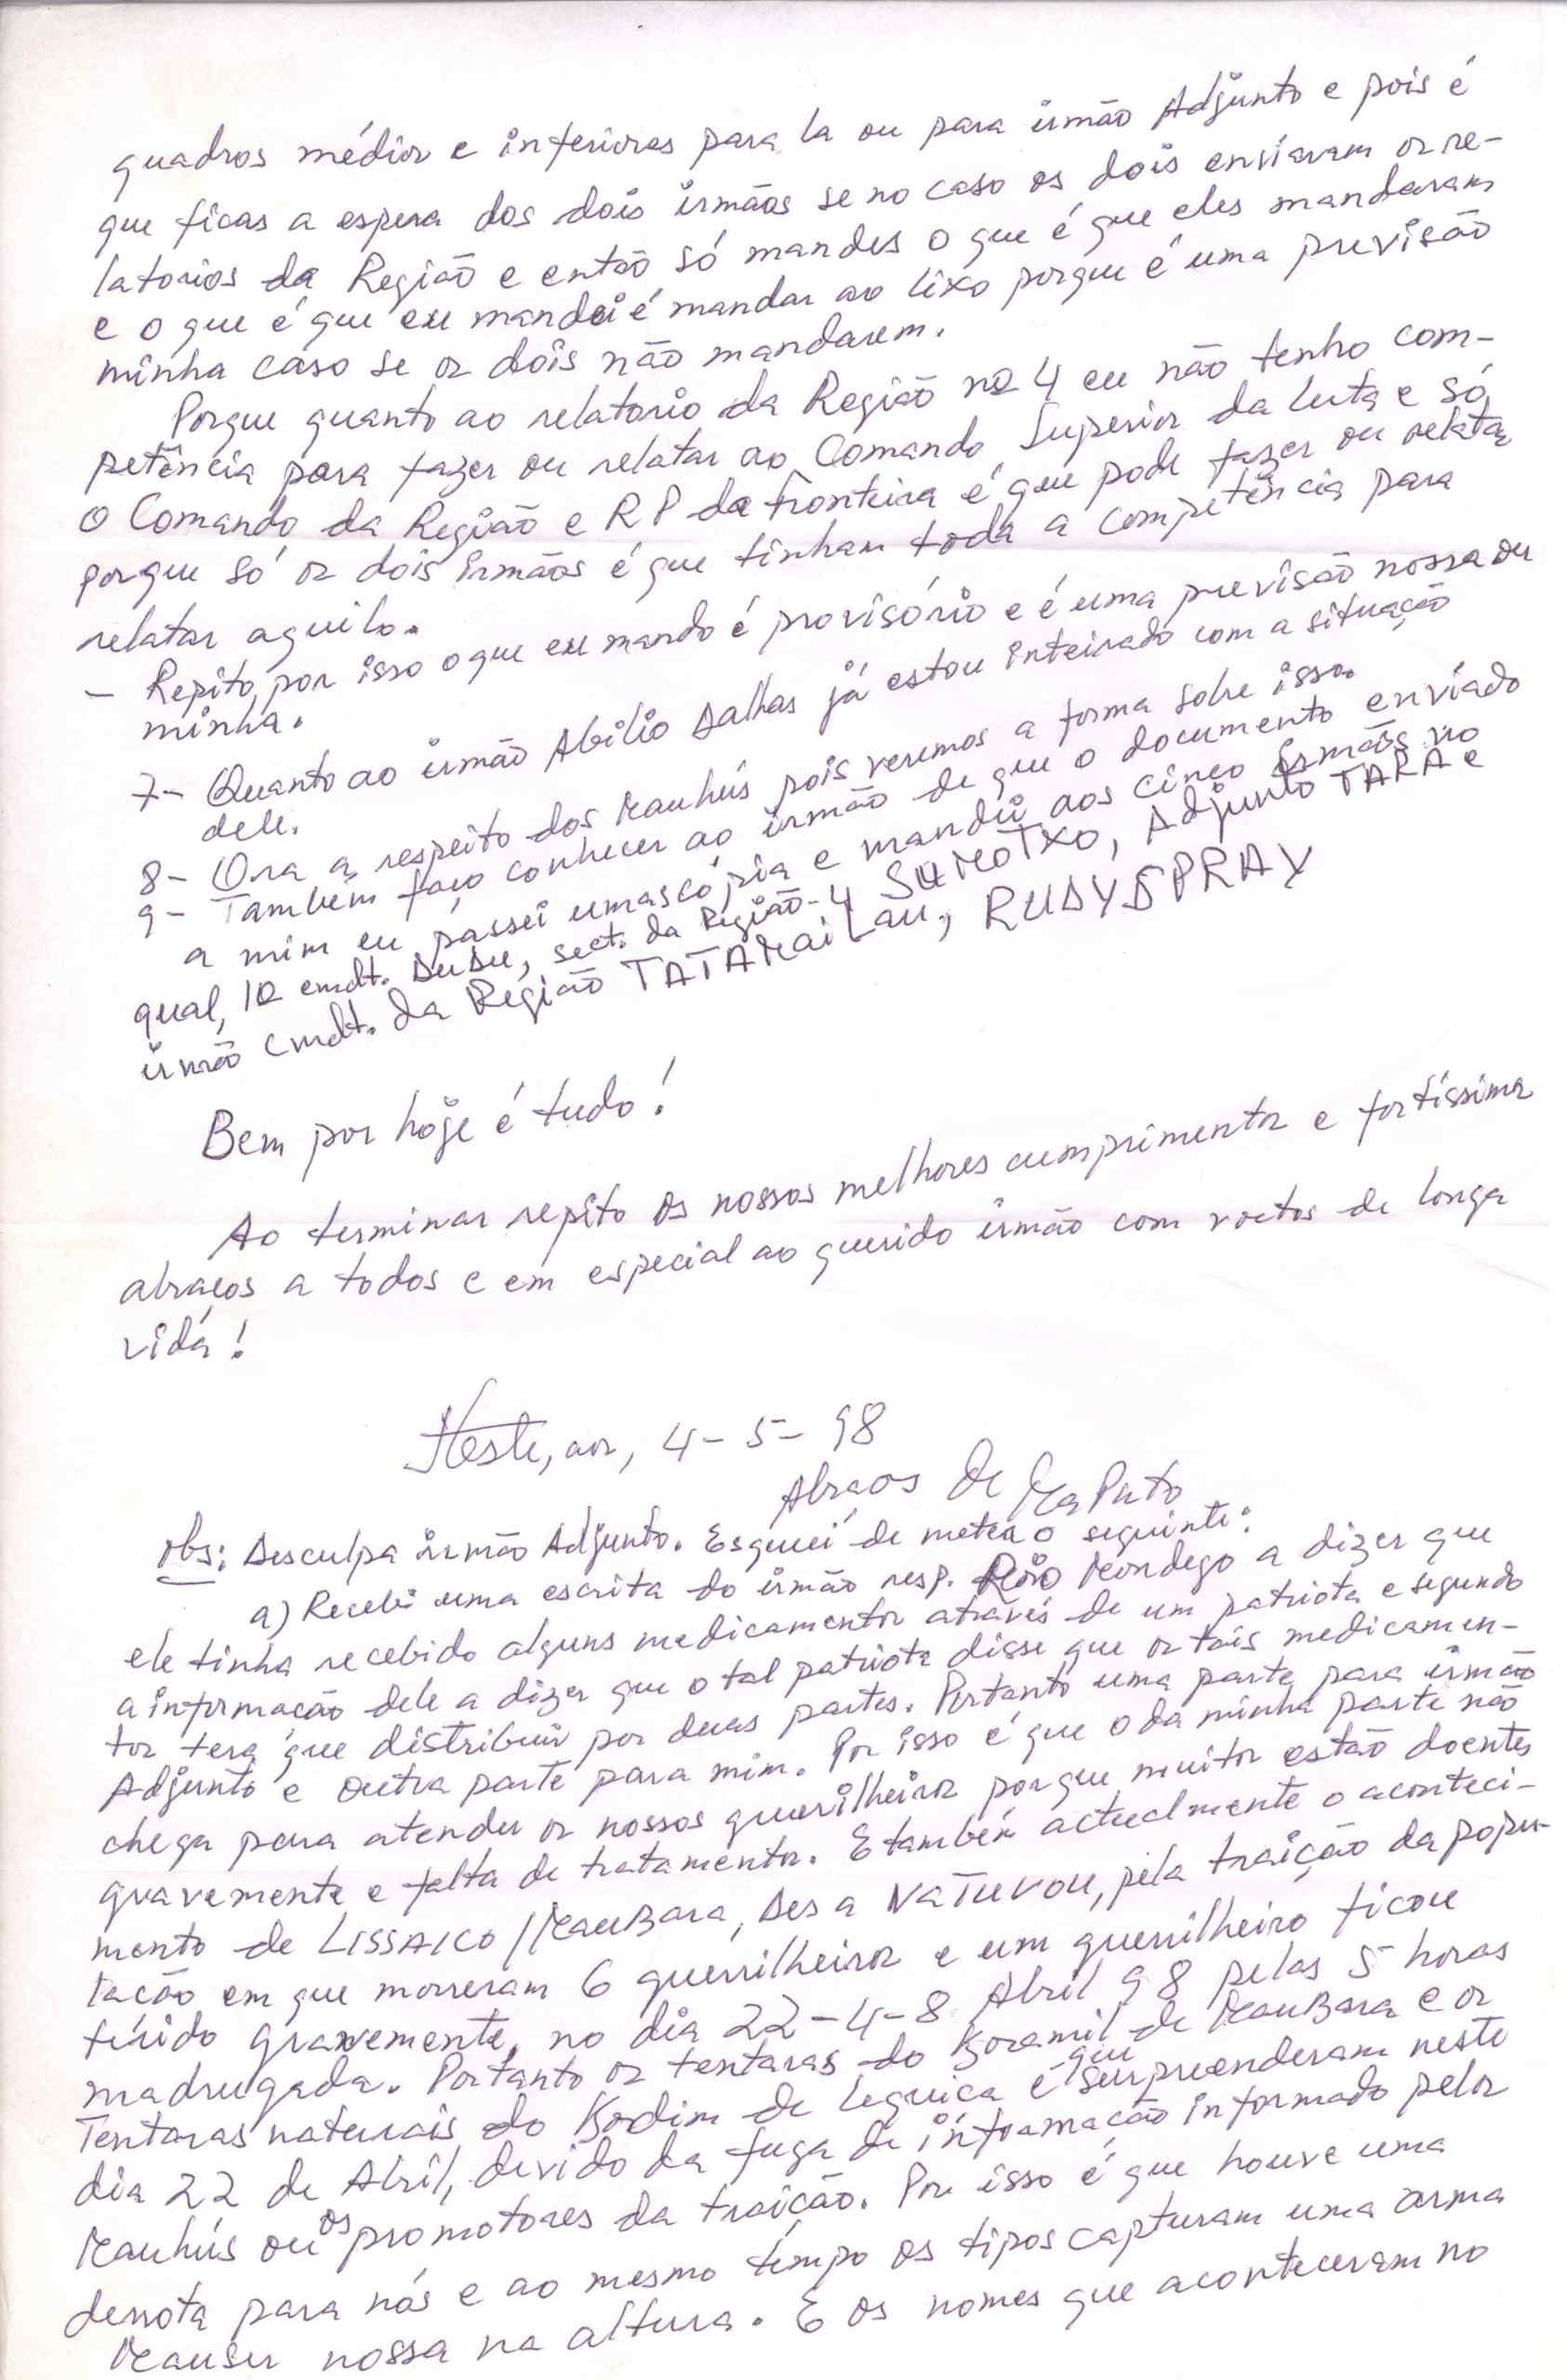 quadros médios e inferiores para la ou para irmão Adjunto e pois é
que ficas a espera dos dois irmãos se no caso os dois enviaram os re-
latorios da Região e então só mandes o que é que eles mandaram
e o que é que eu mandei é mandar ao lixo porque é uma previsão
minha caso se os dois não mandarem.
Porque quanto ao relatorio da Região nº 4 eu não tenho com-
petência para fazer ou relatar ao Comando Superior da luta e só
o Comando da Região e RP da fronteira é que pode fazer ou relatar
porque só os dois irmãos é que tinham toda a competência para
relatar aquilo.
- Repito, por isso o que eu mando é provisório e é uma previsão nossa ou
minha.
7- Quanto ao irmão Abilio Dalhas já estou inteirado com a situação
dele.
8- Ora a respeito dos Mauhús pois veremos a forma sobre isso.
9- Também faço conhecer ao irmão de que o documento enviado
a mim eu passei umas cópia e mandei aos cinco irmãos no
qual, 1º cmdt. DuDu, sect. da Região-4 SUMOTXO, Adjunto TARA e
irmão Cmdt. da Região TATAMaiLau, RUDYSPRAY
Bem por hoje é tudo!
Ao terminar repito os nossos melhores cumprimentos e fortíssimos
abraços a todos e em especial ao querido irmão com voctos de longa
vida!
Neste, aos, 4-5-98
Abraos de MaPuto
Obs: Desculpa irmão Adjunto. Esqueci de meter o seguinte:
a) Recebi uma escrita do irmão resp. Rio Mondego a dizer que
ele tinha recebido alguns medicamentos através de um patriota e segundo
a informacão dele a dizer que o tal patriota disse que os tais medicamen-
tos terá que distribuir por duas partes. Portanto uma parte para irmão
Adjunto e outra parte para mim. Por isso é que o da minha parte não
chega para atender os nossos guerilheiros porque muitos estão doentes
gravemente e falta de tratamentos. E também actuelmente o aconteci-
mento de LISSAICO/MauBara, Des a NATUVOU, pela traição da popu-
lacão em que morreram 6 guerrilheiros e um guerrilheiro ficou
ferido gravemente, no dia 22-4-8 Abril 98 pelas 5 horas
madrugada. Portanto os tentaras do Koramil de MauBara e os
Tentaras naturais do Kodim de Lequica é que surpreenderam neste
dia 22 de Abril, devido da fuga de informacão informado pelos
Mauhús ou os promotores da traição. Por isso é que houve uma
derrota para nós e ao mesmo tempo os tipos capturam uma arma
Mauser nossa na altura. E os nomes que aconteceram no